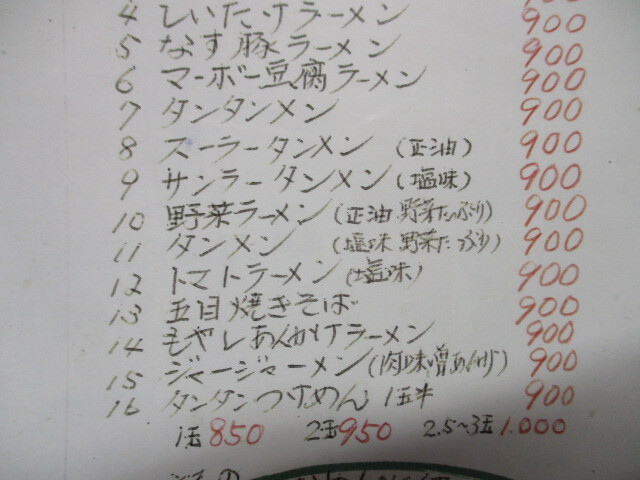 4 しいたけラーメン 900
5 なす豚ラーメン 900
6 マーボー豆腐ラーメン 900
7 タンタンメン 900
8 スーラータンメン (正油) 900
9 サンラータンメン (塩味) 900
10 野菜ラーメン (正油 野菜たっぷり) 900
11 タンメン (塩味 野菜たっぷり) 900
12 トマトラーメン (塩味) 900
13 五目焼きそば 900
14 もやしあんかけラーメン 900
15 ジャージャーメン (肉味噌あんかけ) 900
16 タンタンつけめん 1玉半 900
1玉 850 2玉 950 2.5~3玉 1.000